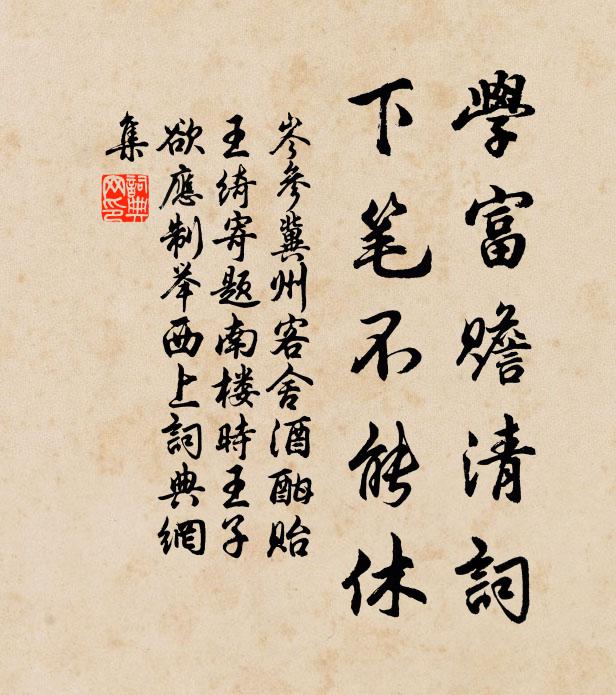 學富贍清詞
下笔不能休
岑參冀州客舍酒酣貽
王绮寄题南楼時王子
欲應制举西上詞典網
集
詞典
网印